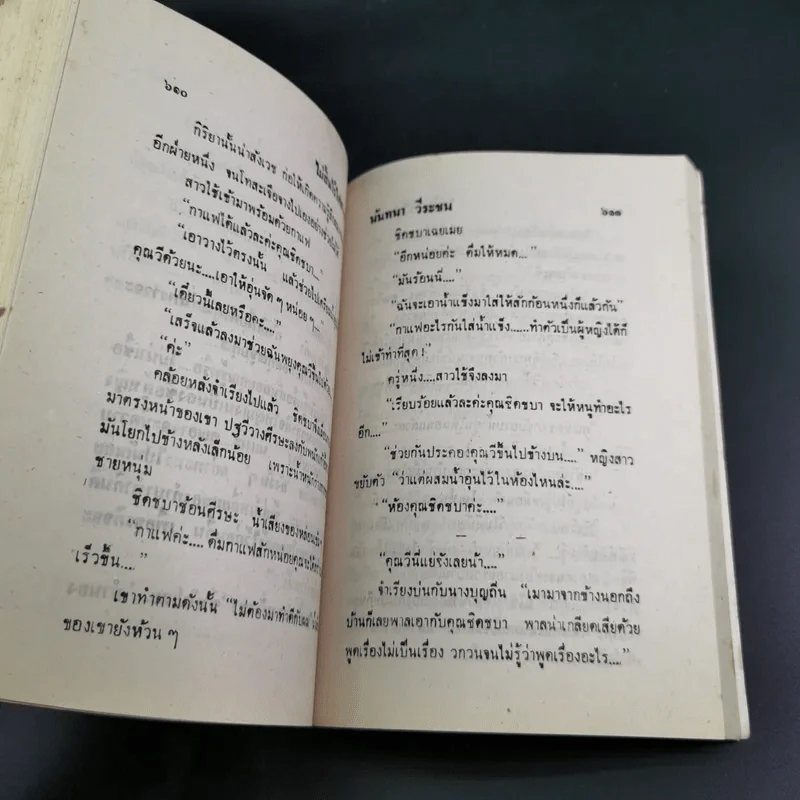 ๖๑๐
กิริยานั้นน่าสังเวช ก่อให้เกิดความรู้สึก
อีกฝ่ายหนึ่ง จนโทสะเจือจางไปเองอย่าง
สาวใช้เข้ามาพร้อมด้วยกาแฟ
“กาแฟได้แล้วละค่ะคุณชิดชบา...”
“เอาวางไว้ตรงนั้น แล้วช่วยไป
คุณวีด้วยนะ....เอาให้อุ่นจัด ๆ หน่อย ๆ
“เดี๋ยวนี้เลยหรือคะ....”
“เสร็จแล้วลงมาช่วยฉันพยุงคุณวีขึ้นไป
“ค่ะ”
คล้อยหลังจำเรียงไปแล้ว ชิดชบาจึง
มาตรงหน้าของเขา ปฐวีวางศีรษะลงกับพนัก
มันโยกไปข้างหลังเล็กน้อย เพราะน้ำหนัก
ชายหนุ่ม
ชิดชบาช้อนศีรษะ น้ำเสียงของหล่อน
“กาแฟค่ะ.... ดื่มกาแฟสักหน่อยคุณจะได้
เร็วขึ้น....”
เขาทำตามดังนั้น “ไม่ต้องมาทำดีกับผม
ของเขายังห้วน ๆ
นันทนา วีระชน ๖๑๑
ชิดชบาเฉยเมย
“อีกหน่อยค่ะ ดื่มให้หมด...”
“มันร้อนนี่....”
“ฉันจะเอาน้ำแข็งมาใส่ให้สักก้อนหนึ่งก็แล้วกัน”
“กาแฟอะไรกันใส่น้ำแข็ง......ทำตัวเป็นผู้หญิงได้ก็
ไม่เข้าท่าที่สุด !”
ครู่หนึ่ง....สาวใช้จึงลงมา
“เรียบร้อยแล้วละค่ะคุณชิดชบา จะให้หนูทำอะไร
อีก....”
“ช่วยกันประคองคุณวีขึ้นไปข้างบน....” หญิงสาว
ขยับตัว “ว่าแต่ผสมน้ำอุ่นไว้ในห้องไหนล่ะ....”
“ห้องคุณชิดชบาค่ะ....”
“คุณวีนี่แย่จังเลยน้า....”
จำเรียงบ่นกับนางบุญถิ่น “เมามาจากข้างนอกถึง
บ้านก็เลยพาลเอากับคุณชิดชบา พาลน่าเกลียดเสียด้วย
พูดเรื่องไม่เป็นเรื่อง วกวนจนไม่รู้ว่าพูดเรื่องอะไร....”